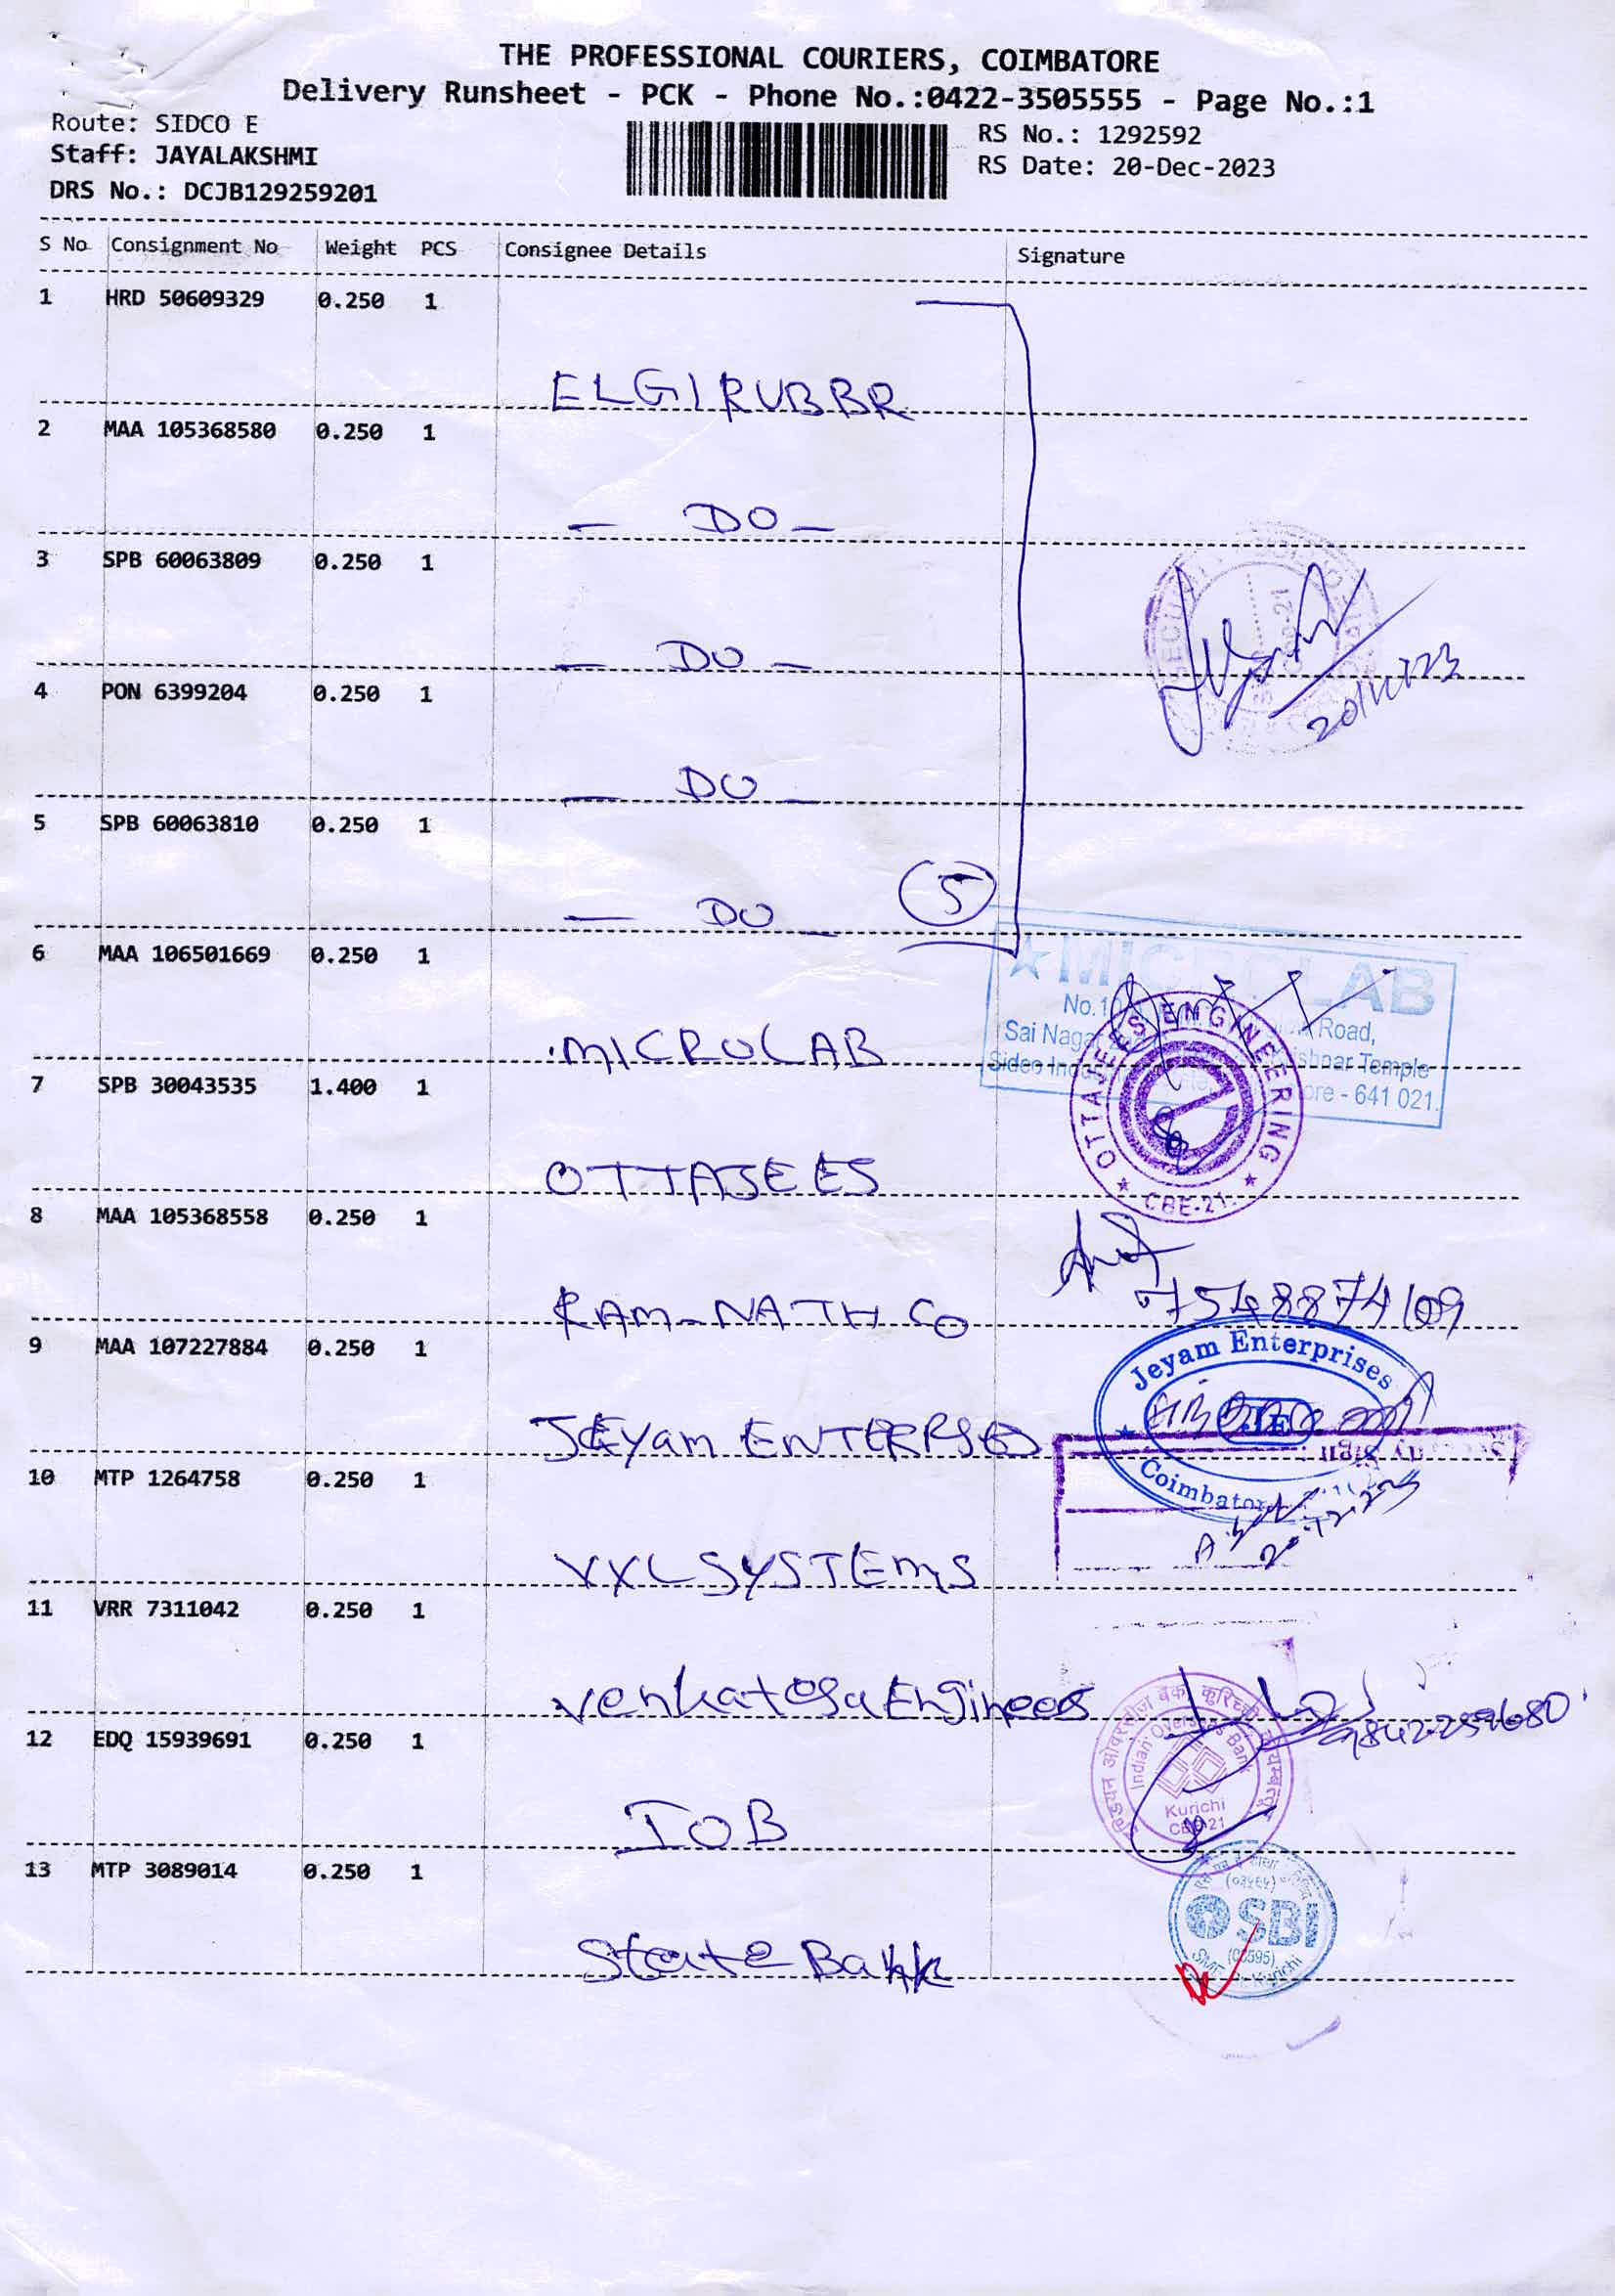 THE PROFESSIONAL COURIERS, COIMBATORE
Delivery Runsheet - PCK - Phone No.:0422-3505555 - Page No.:1
Route: SIDCO E
Staff: JAYALAKSHMI
DRS No.: DCJB129259201
RS No.: 1292592
RS Date: 20-Dec-2023
S No Consignment No Weight PCS Consignee Details Signature
1 HRD 50609329 0.250 1
ELGIRUBBR
2 MAA 105368580 0.250 1
— DO —
3 SPB 60063809 0.250 1
— DO —
4 PON 6399204 0.250 1
— DO —
5 SPB 60063810 0.250 1
— DO — 5
6 MAA 106501669 0.250 1
MICROLAB
MICROLAB
Road,
Sai Nagar
Temple
641 021.
7 SPB 30043535 1.400 1
OTTAJEES
OTTAJEES ENGINEERING
CBE-21.
8 MAA 105368558 0.250 1
RAM-NATH CO
7548874109
9 MAA 107227884 0.250 1
JEYam ENTERPSES
Jeyam Enterprises
JE
Coimbatore
10 MTP 1264758 0.250 1
VXL SYSTEMS
11 VRR 7311042 0.250 1
Venkatesa Engineers
12 EDQ 15939691 0.250 1
IOB
Indian Overseas Bank
Kurichi
CBE-21
13 MTP 3089014 0.250 1
State Bank
SBI
Kurichi